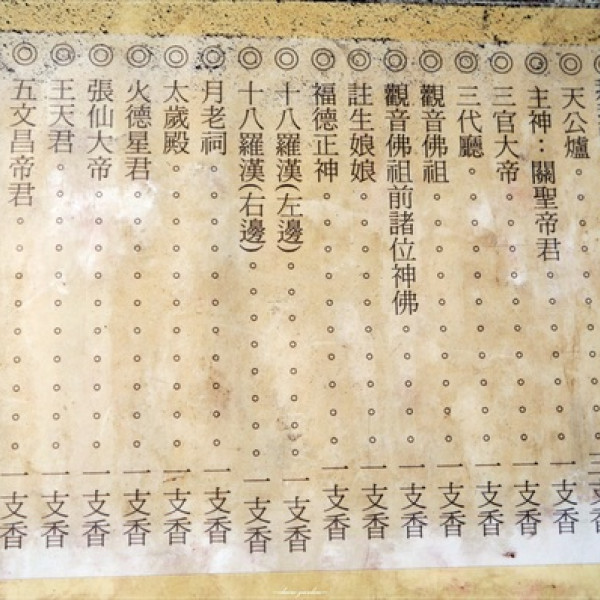 ◎天公爐。。。。。。。。。一支香
◎主神：關聖帝君。。。。。一支香
◎三官大帝。。。。。。。。一支香
◎三代廳。。。。。。。。。一支香
◎觀音佛祖。。。。。。。。一支香
◎觀音佛祖前諸位神佛。。。一支香
◎註生娘娘。。。。。。。。一支香
◎福德正神。。。。。。。。一支香
◎十八羅漢(左邊)。。。。。一支香
◎十八羅漢(右邊)。。。。。一支香
◎月老祠。。。。。。。。。一支香
◎太歲殿。。。。。。。。。一支香
◎火德星君。。。。。。。。一支香
◎張仙大帝。。。。。。。。一支香
◎王天君。。。。。。。。。一支香
◎五文昌帝君。。。。。。。一支香